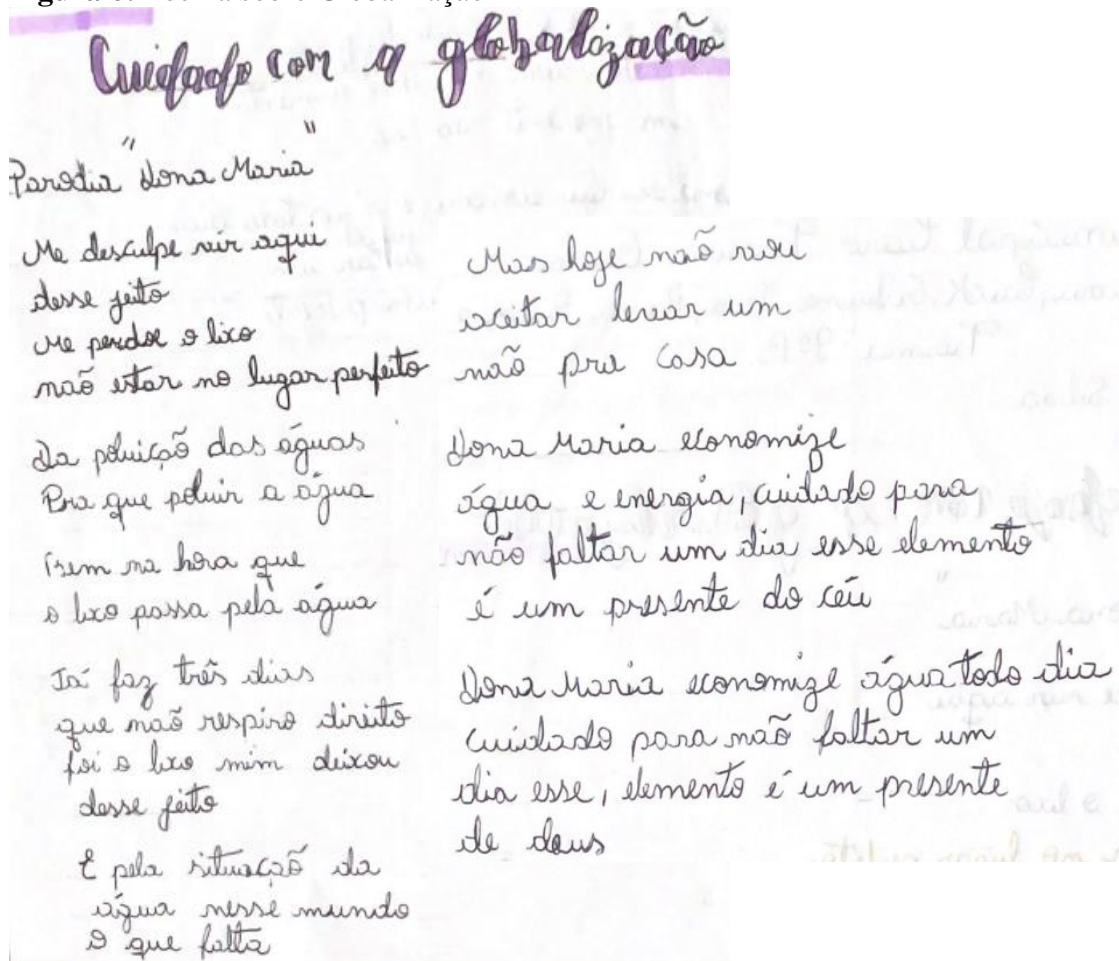 Cuidado com a globalização
Parodia "Dona Maria"
Me desculpe vir aqui
desse jeito
Me perdoe o lixo
não estar no lugar perfeito
Da poluição das águas
Pra que poluir a água
Bem na hora que
o lixo passa pela água
Já faz três dias
que não respiro direito
foi o lixo mim deixou
desse jeito
E pela situação da
água nesse mundo
o que falta
Mas hoje não vou
aceitar levar um
não pra casa
Dona Maria economize
água e energia cuidado para
não faltar um dia esse elemento
é um presente do céu
Dona Maria economize água todo dia
cuidado para não faltar um
dia esse, elemento é um presente
de deus